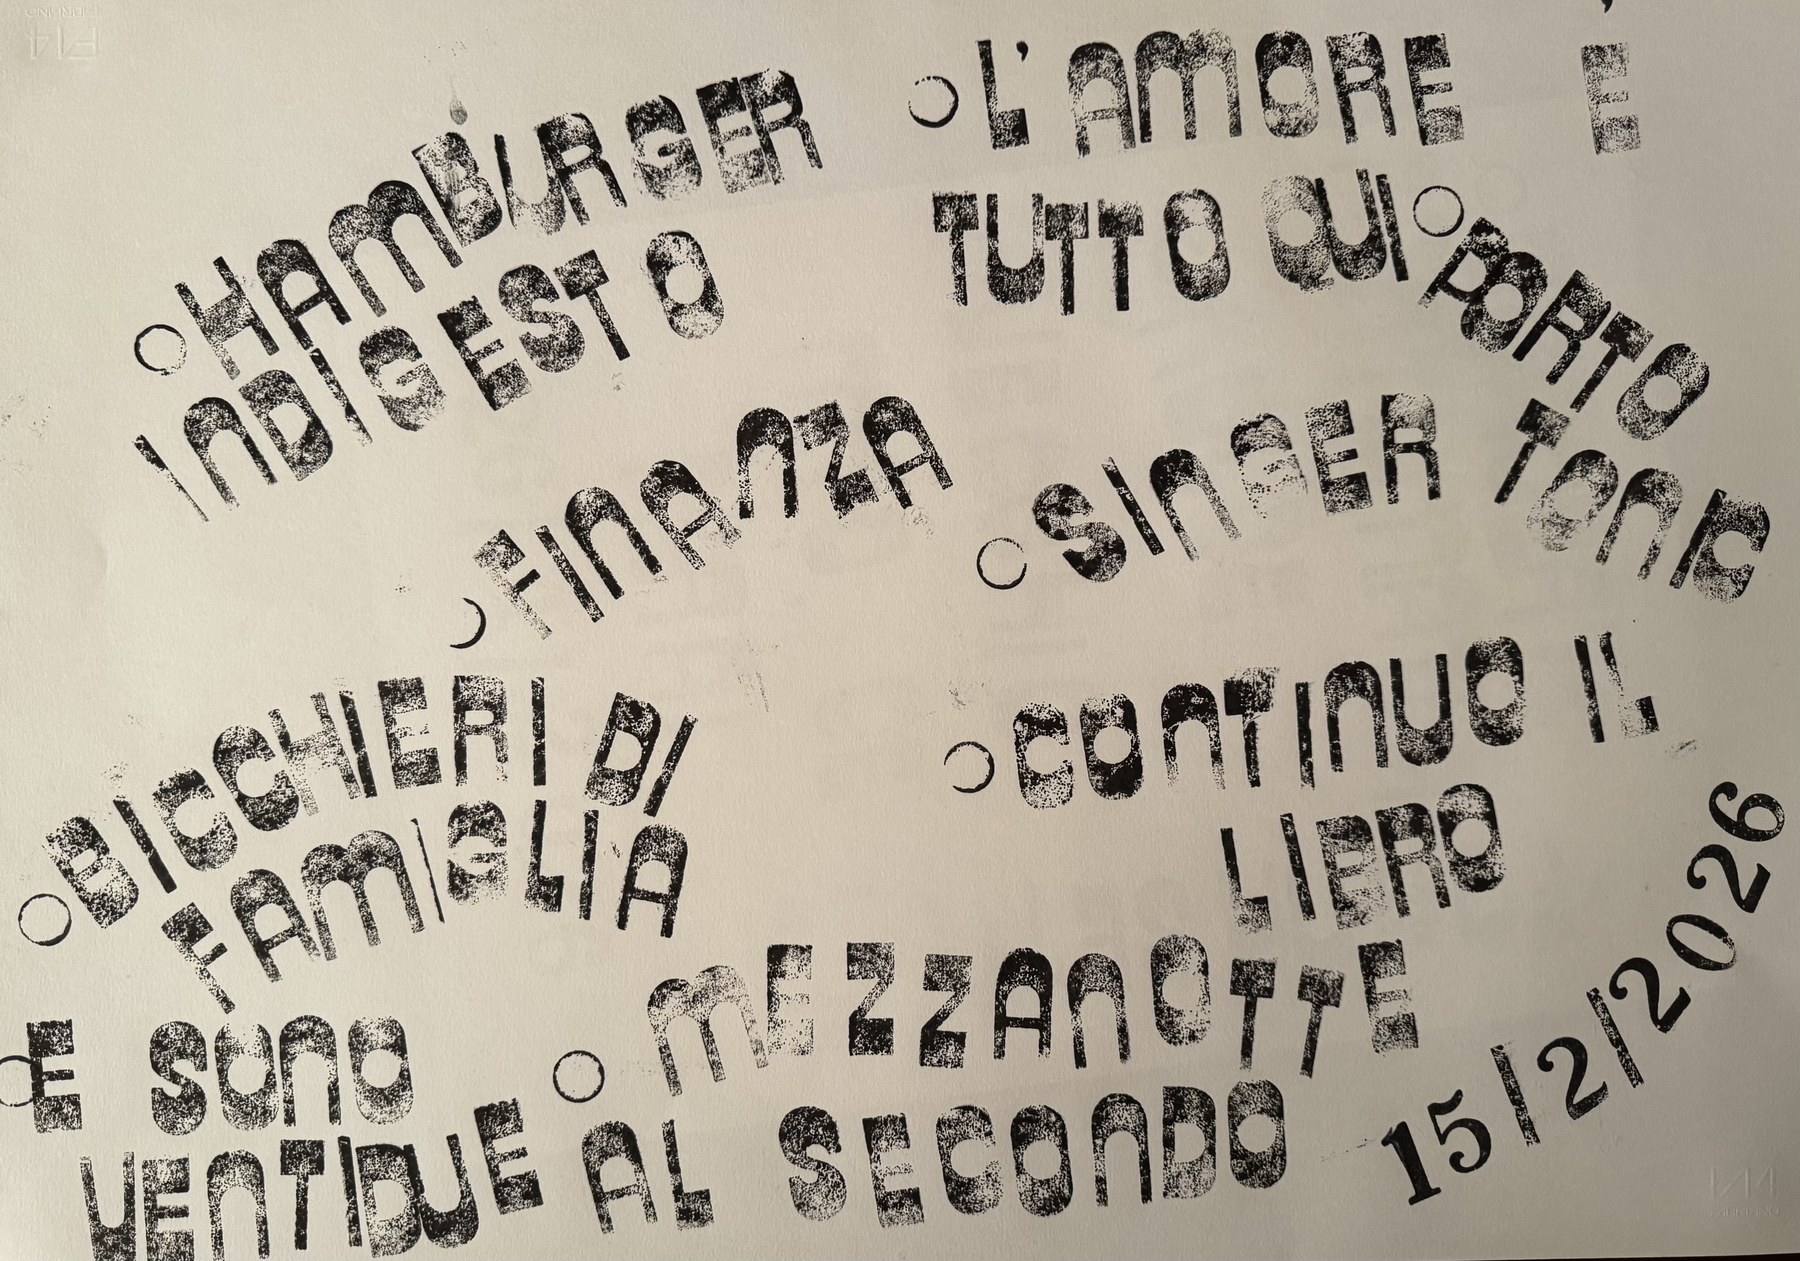 HAMBURGER
INDIGESTO
L'AMORE È
TUTTO QUI
PORTO
TONIC
FINANZA
SINGER
BICCHIERI DI
FAMIGLIA
CONTINUO IL
LIBRO
E SONO
VENTIDUE
MEZZANOTTE
AL SECONDO
15/2/2026